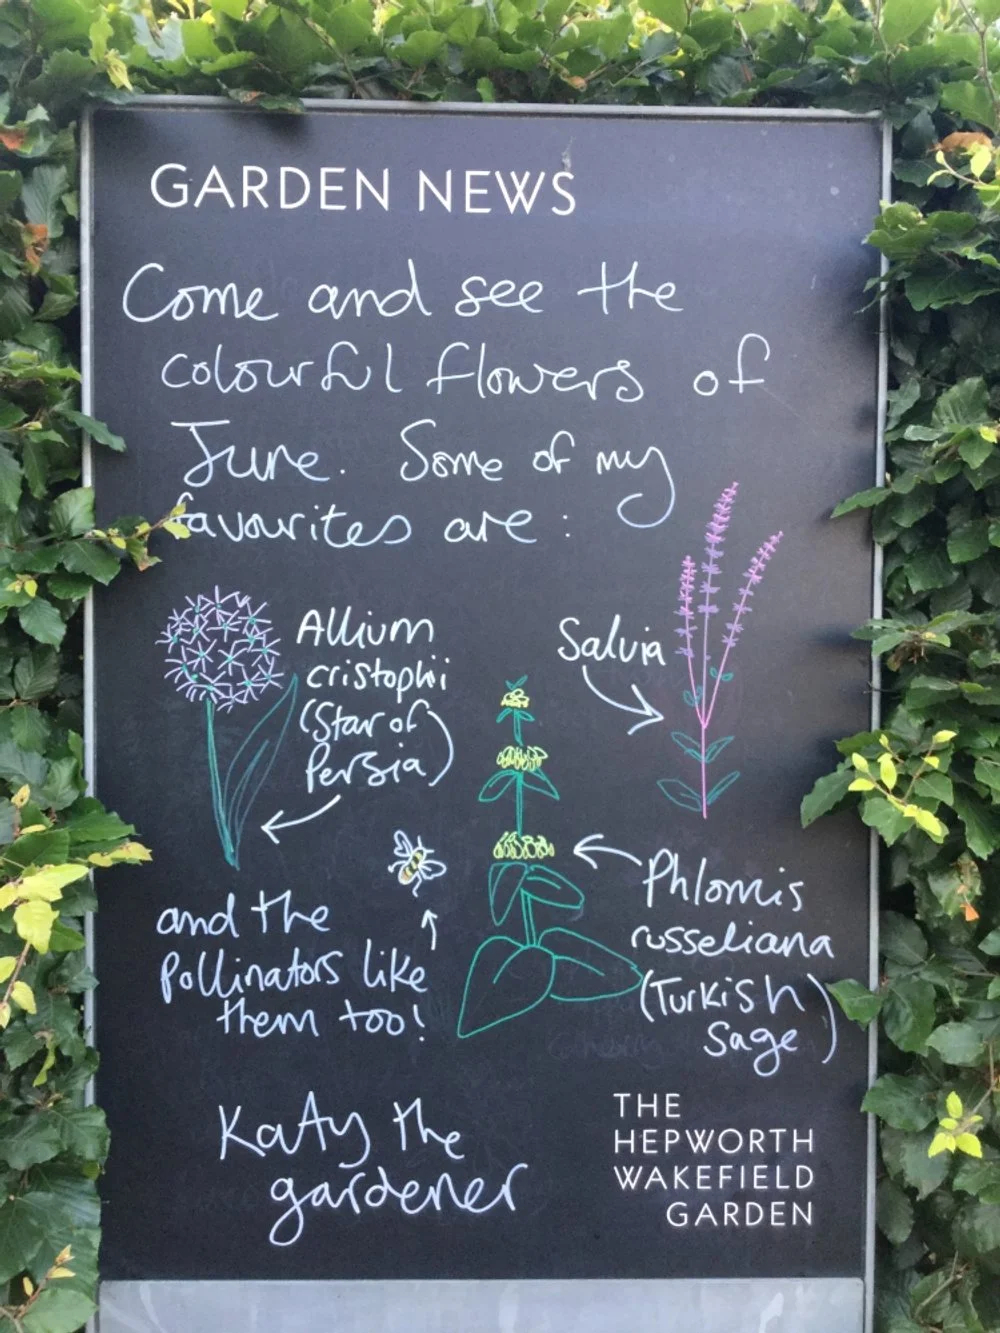 GARDEN NEWS
Come and see the
colourful flowers of
June. Some of my
favourites are :
Allium
cristophii
(Star of
Persia)
Salvia
Phlomis
russeliana
(Turkish
Sage)
and the
Pollinators like
them too!
Katy the
gardener
THE
HEPWORTH
WAKEFIELD
GARDEN